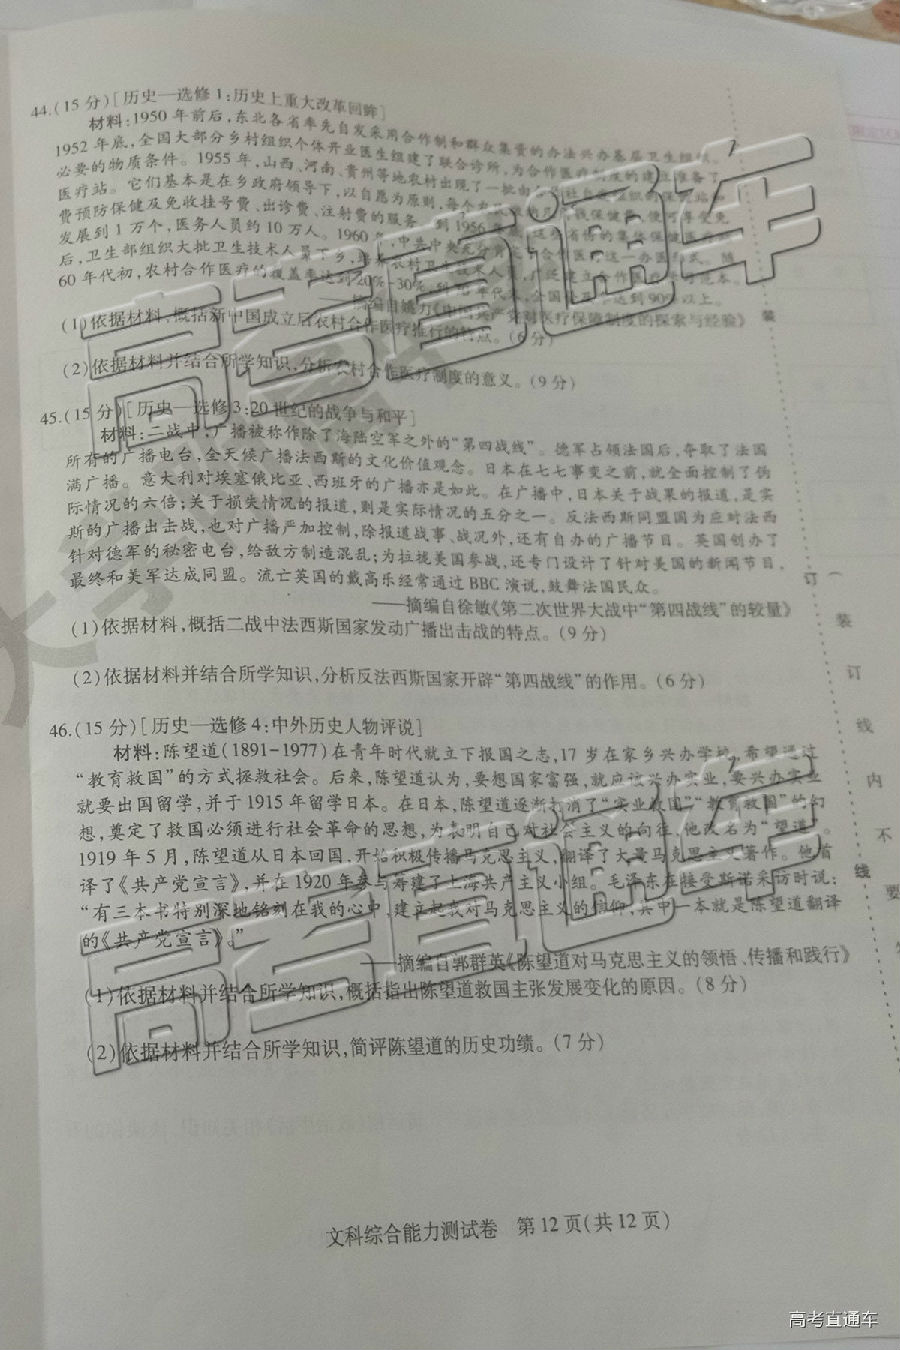 44.(15分)[历史—选修1:历史上重大改革回眸]
材料:1950年前后,东北各省率先自发采用合作制和群众集资的办法兴办基层卫生组织。
1952年底,全国大部分乡村组织个体开业医生组建了联合诊所,为合作医疗制度的建立准备了
必要的物质条件。1955年,山西、河南、贵州等地农村出现了一批由
医疗站。它们基本是在乡政府领导下,以自愿为原则,每个 保健费,便可享受免
费预防保健及免收挂号费、出诊费、注射费的服务。到1956年 的集体保健医疗
发展到1万个,医务人员约10万人。1960年,中共中央 这一办医形式。随
后,卫生部组织大批卫生技术人员下乡, 农村卫生技术人员,广泛建立合作医疗
60年代初,农村合作医疗的覆盖率达到20%-30%, 年代末,全国 达到90%以上。
(1)依据材料,概括新中国成立后农村合作医疗推行的特点。(6分)
(2)依据材料并结合所学知识,分析农村合作医疗制度的意义。(9分)
45.(15分)[历史—选修3:20世纪的战争与和平]
材料:二战中,广播被称作除了海陆空军之外的“第四战线”。德军占领法国后,夺取了法国
所有的广播电台,全天候广播法西斯的文化价值观念。日本在七七事变之前,就全面控制了伪
满广播。意大利对埃塞俄比亚、西班牙的广播亦是如此。在广播中,日本关于战果的报道,是实
际情况的六倍;关于损失情况的报道,则是实际情况的五分之一。反法西斯同盟国为应对法西
斯的广播出击战,也对广播严加控制,除报道战事、战况外,还有自办的广播节目。英国创办了
针对德军的秘密电台,给敌方制造混乱;为拉拢美国参战,还专门设计了针对美国的新闻节目,
最终和美军达成同盟。流亡英国的戴高乐经常通过BBC演说,鼓舞法国民众。
——摘编自徐敏《第二次世界大战中“第四战线”的较量》
(1)依据材料,概括二战中法西斯国家发动广播出击战的特点。(9分)
(2)依据材料并结合所学知识,分析反法西斯国家开辟“第四战线”的作用。(6分)
46.(15分)[历史—选修4:中外历史人物评说]
材料:陈望道(1891-1977)在青年时代就立下报国之志,17岁在家乡兴办学校,希望通过
“教育救国”的方式拯救社会。后来,陈望道认为,要想国家富强,就应该兴办实业,要兴办实业
就要出国留学,并于1915年留学日本。在日本,陈望道逐渐打消了“实业救国”“教育救国”的幻
想,奠定了救国必须进行社会革命的思想,为表明自己对社会主义的向往,他改名为“望道”。
1919年5月,陈望道从日本回国,开始积极传播马克思主义,翻译了大量马克思主义著作。他首
译了《共产党宣言》,并在1920年参与筹建了上海共产主义小组。毛泽东在接受斯诺采访时说:
“有三本书特别深地铭刻在我的心中,建立起我对马克思主义的信仰,其中一本就是陈望道翻译
的《共产党宣言》。”
——摘编自郭群英《陈望道对马克思主义的领悟、传播和践行》
(1)依据材料并结合所学知识,概括指出陈望道救国主张发展变化的原因。(8分)
(2)依据材料并结合所学知识,简评陈望道的历史功绩。(7分)
文科综合能力测试卷 第12页(共12页)
装
订
线
装
订
线
内
不
要
高考直通车
高考直通车
高考直通车